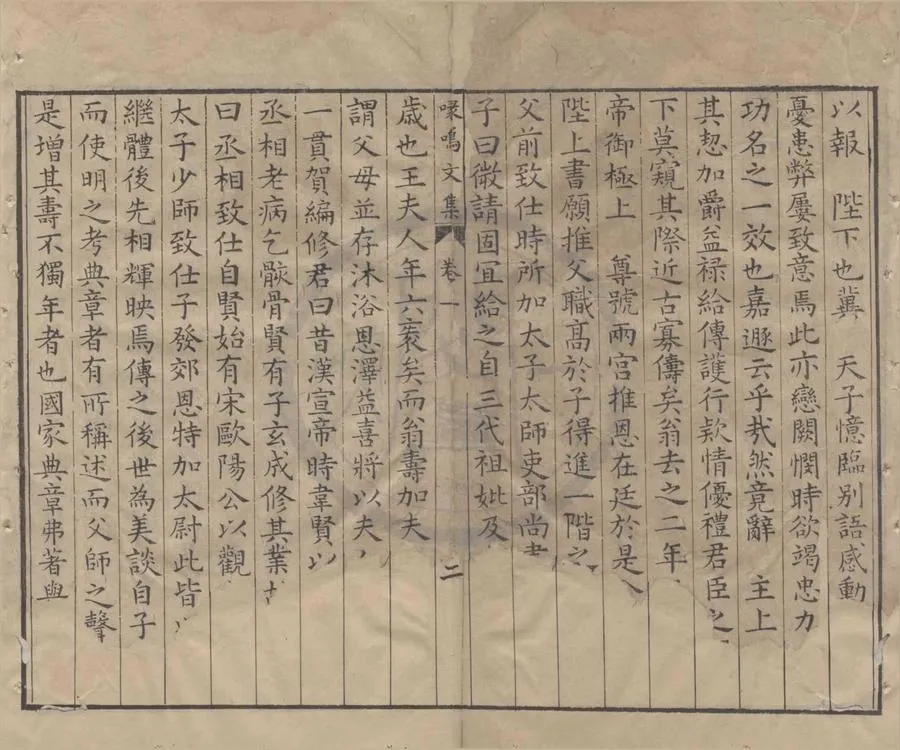 以報　陛下也冀　天子憶臨別語感動
憂患弊屢致意焉此亦戀闕憫時欲竭忠力
功名之一效也嘉遯云乎哉然竟辭　主上
其恝加爵益祿給傳護行欵情優禮君臣之
下莫窺其際近古寡儔矣翁去之二年
帝御極上　尊號兩宮推恩在廷於是
陛上書願推父職高於子得進一階之
父前致仕時所加太子太師吏部尚書
子曰微請固宜給之自三代祖妣及
喙鳴文集　卷一　二
歳也王夫人年六袠矣而翁壽加夫
謂父母並存沐浴恩澤益喜將以夫
一貫賀編修君曰昔漢宣帝時韋賢以
丞相老病乞骸骨賢有子玄成修其業
曰丞相致仕自賢始有宋歐陽公以觀
太子少師致仕子發郊恩特加太尉此皆
繼體後先相輝映焉傳之後世為美談自子
而使明之考典章者有所稱述而父師之聲
是增其壽不獨年者也國家典章弗著與